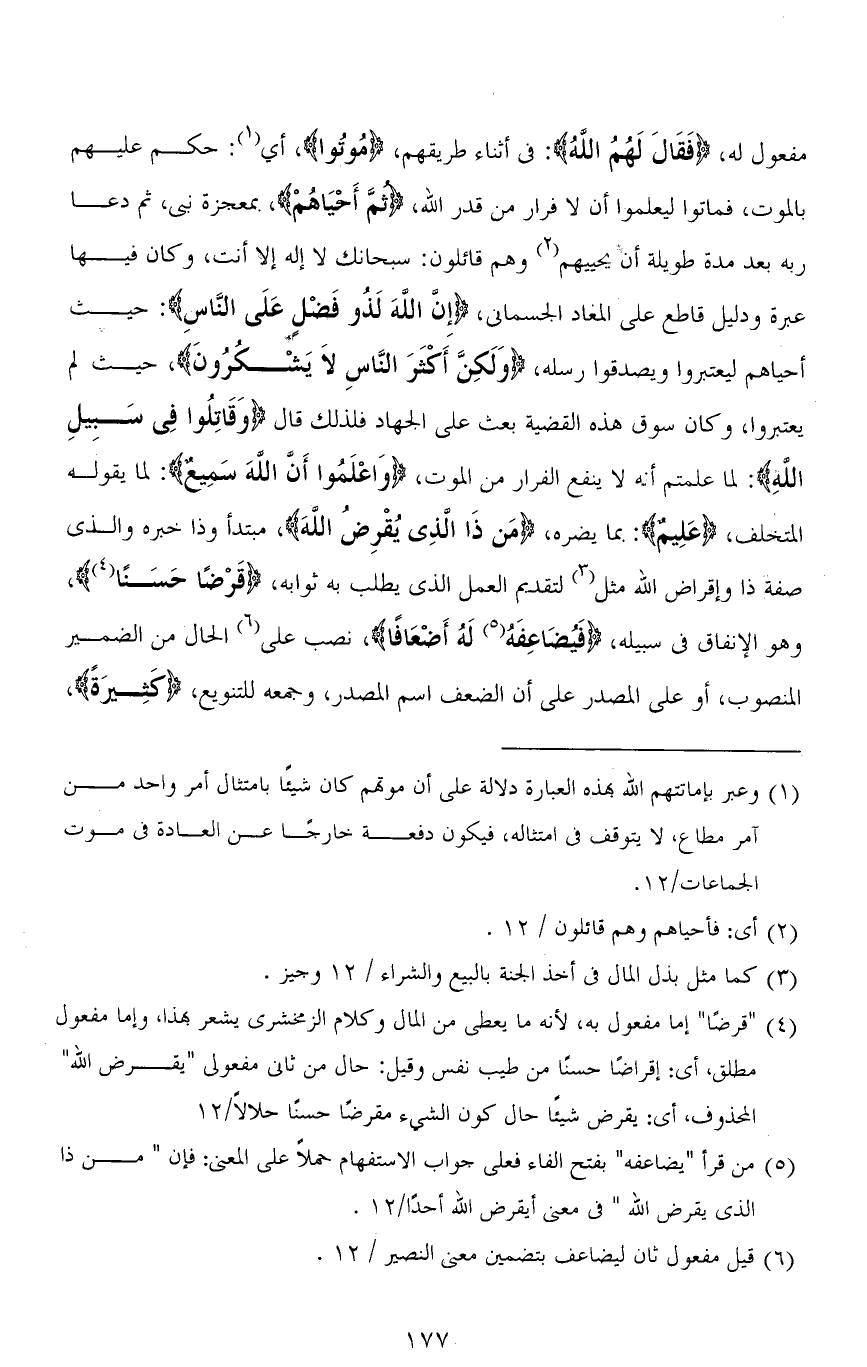 مفعول له، ﴿فَقَالَ لَهُمُ اللَّهُ﴾: فى أثناء طريقهم، ﴿مُوتُوا﴾، أي(١): حكم عليهم
بالموت، فماتوا ليعلموا أن لا فرار من قدر الله، ﴿ثُمَّ أَحْيَاهُمْ﴾، بمعجزة نبى، ثم دعا
ربه بعد مدة طويلة أن يحييهم(٢) وهم قائلون: سبحانك لا إله إلا أنت، وكان فيها
عبرة ودليل قاطع على المغاد الجسمانى، ﴿إِنَّ اللَّهَ لَذُو فَضْلٍ عَلَى النَّاسِ﴾: حيث
أحياهم ليعتبروا ويصدقوا رسله، ﴿وَلَكِنَّ أَكْثَرَ النَّاسِ لاَ يَشْكُرُونَ﴾، حيث لم
يعتبروا، وكان سوق هذه القضية بعث على الجهاد فلذلك قال ﴿وَقَاتِلُوا فِى سَبِيلِ
اللَّهِ﴾: لما علمتم أنه لا ينفع الفرار من الموت، ﴿وَاعْلَمُوا أَنَّ اللَّهَ سَمِيعٌ﴾: لما يقوله
المتخلف، ﴿عَلِيمٌ﴾: بما يضره، ﴿مَن ذَا الَّذِى يُقْرِضُ اللَّهَ﴾، مبتدأ وذا خبره والذى
صفة ذا وإقراض الله مثل(٣) لتقديم العمل الذى يطلب به ثوابه، ﴿قَرْضًا حَسَنًا(٤)﴾،
وهو الإنفاق فى سبيله، ﴿فَيُضَاعِفَهُ(٥) لَهُ أَضْعَافًا﴾، نصب على(٦) الحال من الضمير
المنصوب، أو على المصدر على أن الضعف اسم المصدر، وجمعه للتنويع، ﴿كَثِيرَةً﴾،
(١) وعبر بإماتتهم الله بهذه العبارة دلالة على أن موتهم كان شيئًا بامتثال أمر واحد من
آمر مطاع، لا يتوقف فى امتثاله، فيكون دفعة خارجًا عن العادة فى موت
الجماعات/١٢.
(٢) أى: فأحياهم وهم قائلون / ١٢ .
(٣) كما مثل بذل المال فى أخذ الجنة بالبيع والشراء / ١٢ وجيز .
(٤) "قرضًا" إما مفعول به، لأنه ما يعطى من المال وكلام الزمخشرى يشعر بهذا، وإما مفعول
مطلق، أى: إقراضًا حسنًا من طيب نفس وقيل: حال من ثانى مفعولى "يقرض الله"
المحذوف، أى: يقرض شيئًا حال كون الشيء مقرضًا حسنًا حلالاً/١٢
(٥) من قرأ "يضاعفه" بفتح الفاء فعلى جواب الاستفهام حملاً على المعنى: فإن " من ذا
الذى يقرض الله " فى معنى أيقرض الله أحدًا/١٢ .
(٦) قيل مفعول ثان ليضاعف بتضمين معنى النصير / ١٢ .
١٧٧